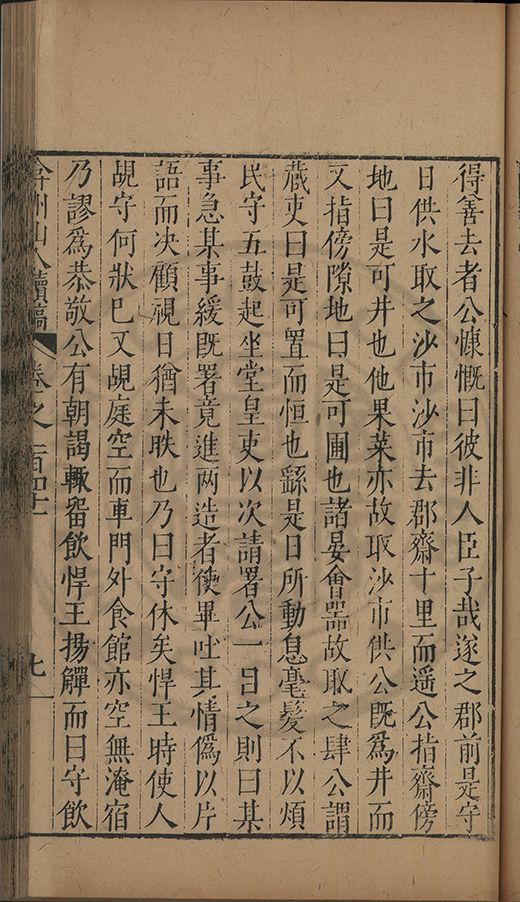 得善去者公慷慨曰彼非人臣子哉遂之郡前是守
日供水取之沙市沙市去郡齋十里而遥公指齋傍
地曰是可井也他果菜亦故取沙市供公旣爲井而
又指傍隙地曰是可圃也諸晏會器故取之肆公謂
藏吏曰是可置而恒也繇是日所動息毫髮不以煩
民守五鼓起坐堂皇吏以次請署公一日之則曰某
事急某事緩旣署竟進两造者使畢吐其情僞以片
語而决顧視日猶未昳也乃曰守休矣悍王時使人
覘守何狀巳又覘庭空而車門外食館亦空無淹宿
乃謬爲恭敬公有朝謁輙畱飮悍王揚觶而曰守飮
弇州山人續稿 卷之一百四十一 七